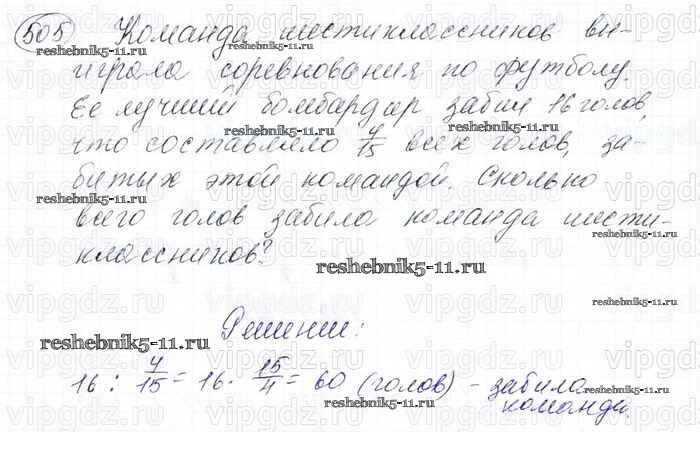 505 Команда шестиклассников вы-
играла соревнования по футболу.
Ее лучший бомбардир забил 16 голов,
что составляло 4/15 всех голов, за-
битых этой командой. Сколько
всего голов забила команда шести-
классников?
Решение:
16 : 4/15 = 16 · 15/4 = 60 (голов) - забила
команда.
reshebnik5-11.ru
vipgdz.ru